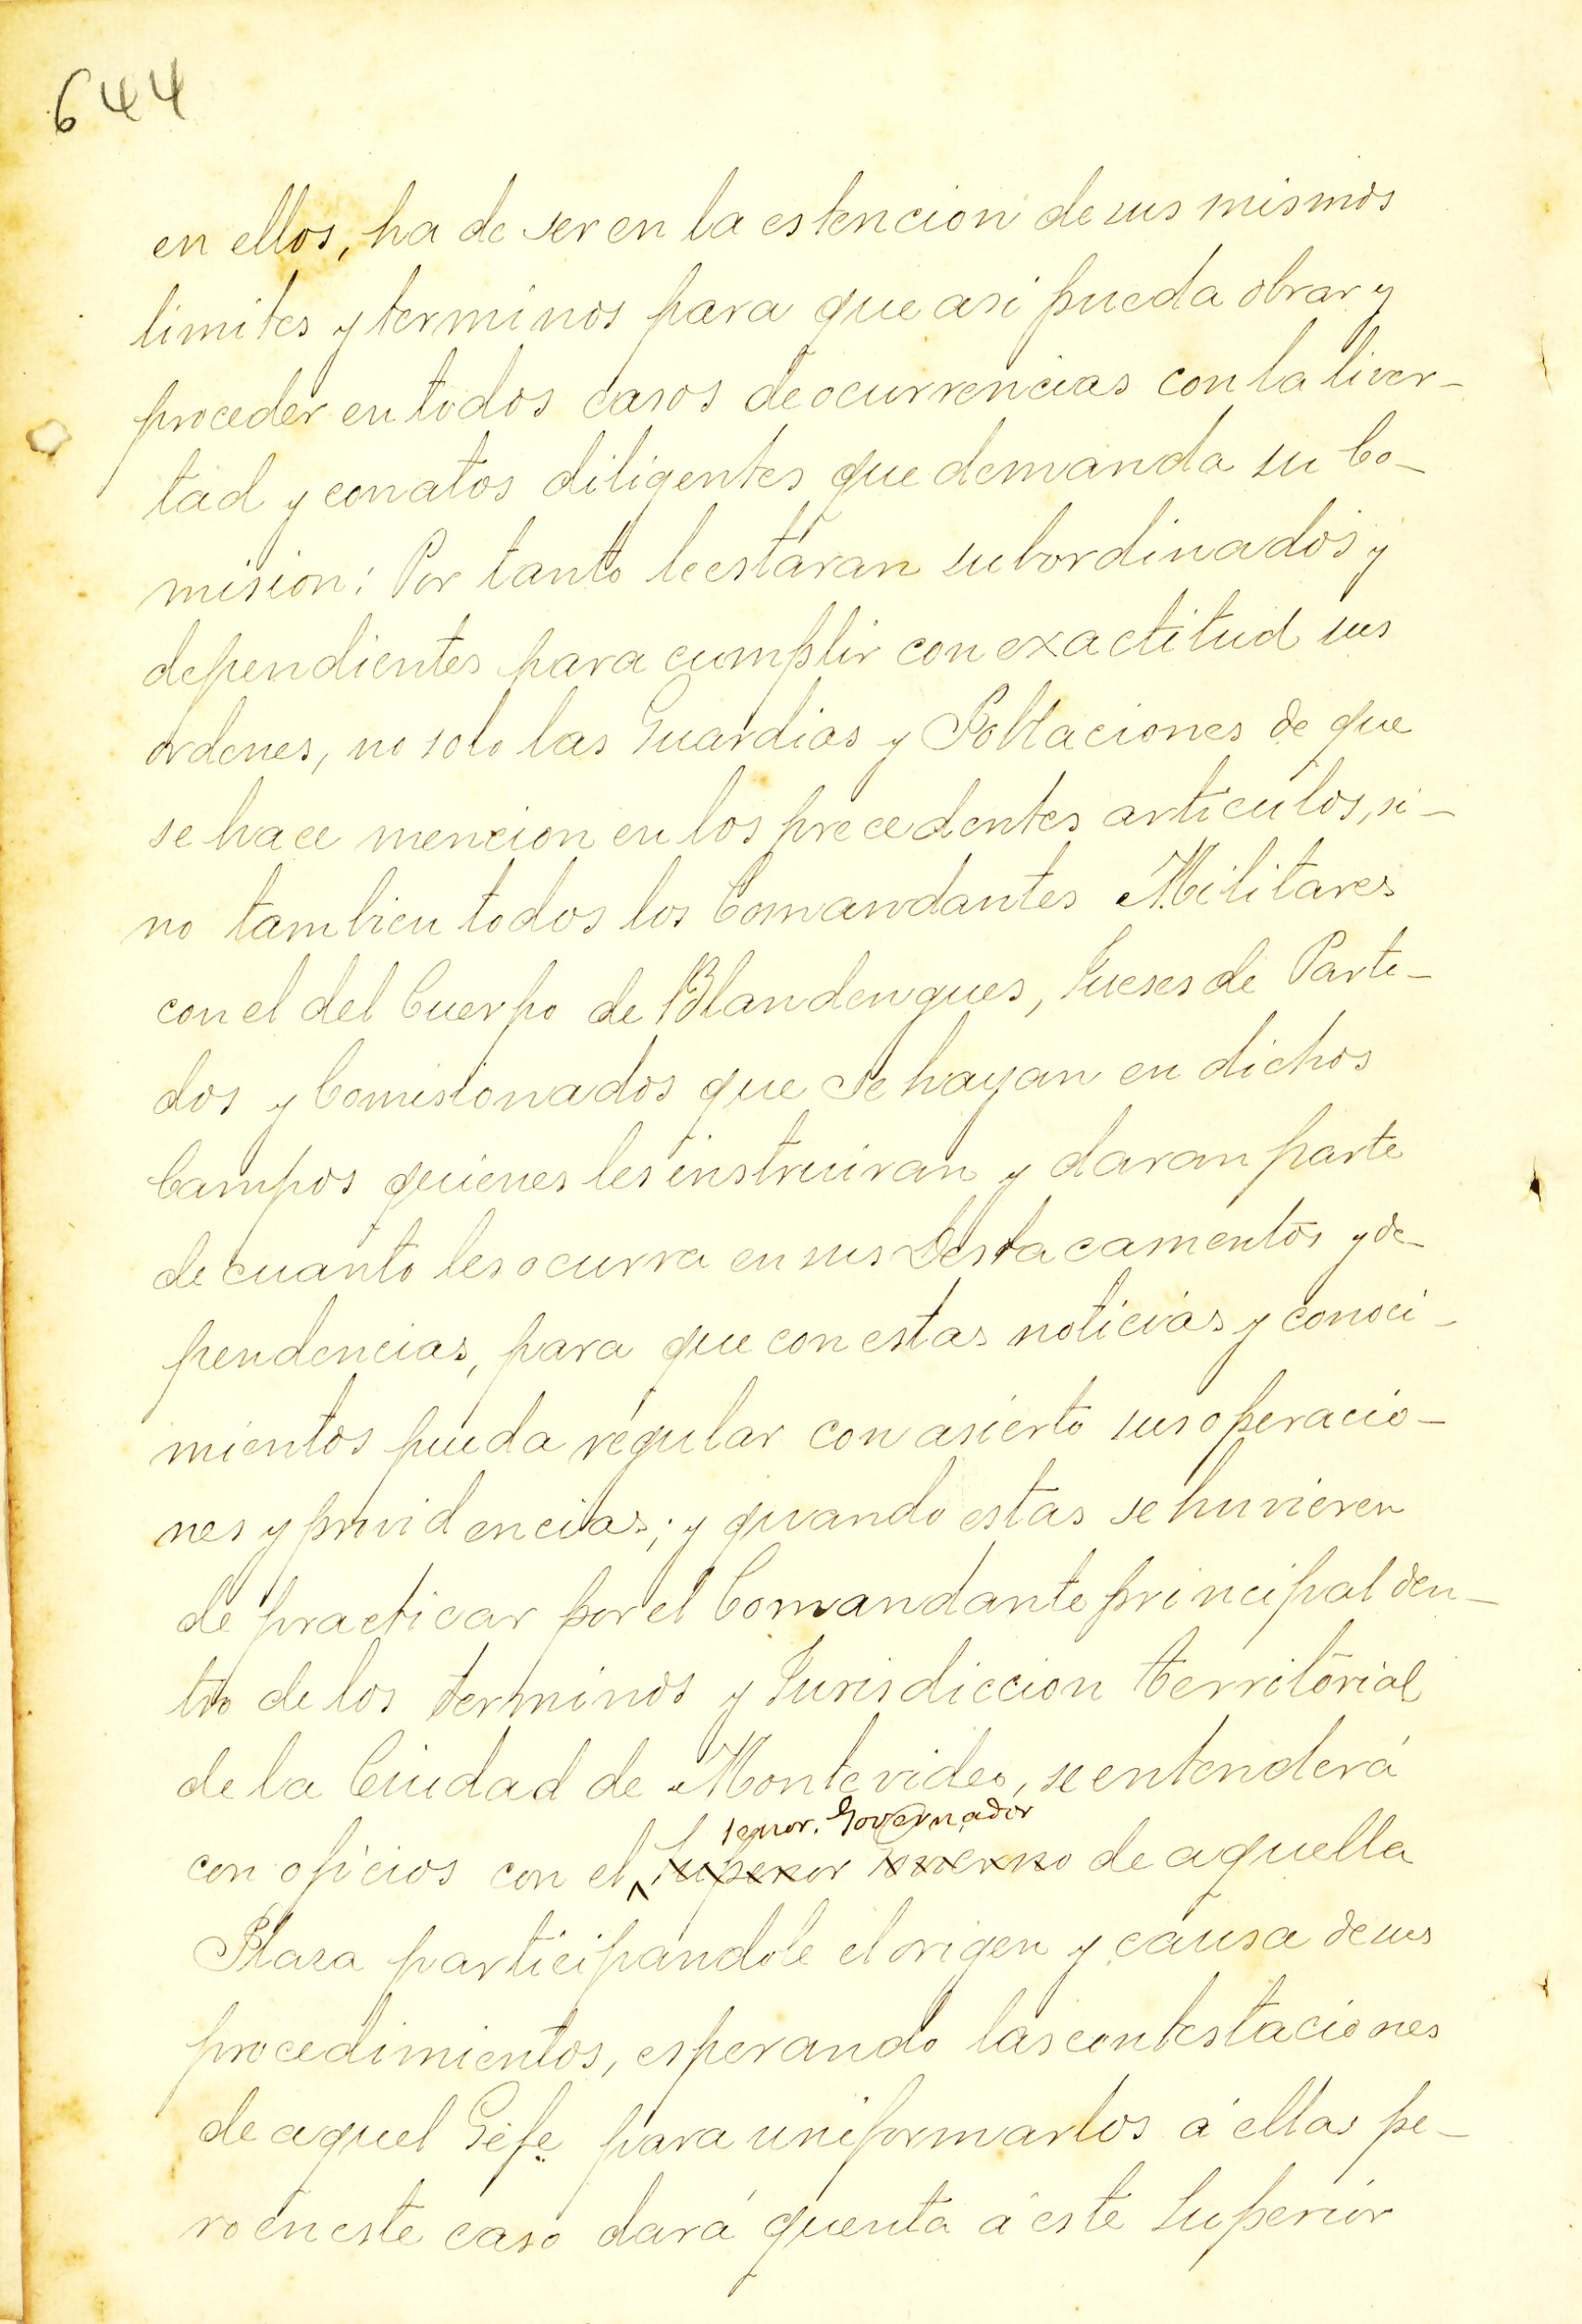 644
en ellos, ha de ser en la estencion de sus mismos
limites y terminos para que asi pueda obrar y
proceder en todos casos de ocurrencias con la liver-
tad y conatos diligentes que demanda su Co-
mision: Por tanto le estaran subordinados y
dependientes para cumplir con exactitud sus
ordenes, no solo las Guardias y Poblaciones de que
se hace mencion en los precedentes articulos, si-
no tambien todos los Comandantes Militares
con el del Cuerpo de Blandengues, Jueses de Parti-
dos y Comisionados que se hayan en dichos
Campos quienes les instruiran y daran parte
de cuanto les ocurra en sus Destacamentos y de-
pendencias, para que con estas noticias y conoci-
mientos pueda regular con asierto sus operacio-
nes y providencias; y quando estas se huvieren
de practicar por el Comandante principal den-
tro de los terminos y Jurisdiccion territorial
de la Ciudad de Montevideo, se entenderá
senor. Governador
con oficios con el Superior Govierno de aquella
Plaza participandole el origen y causa de sus
procedimientos, esperando las contestaciones
de aquel Gefe para uniformarlos á ellas pe-
ro en este caso dará quenta á este Superior